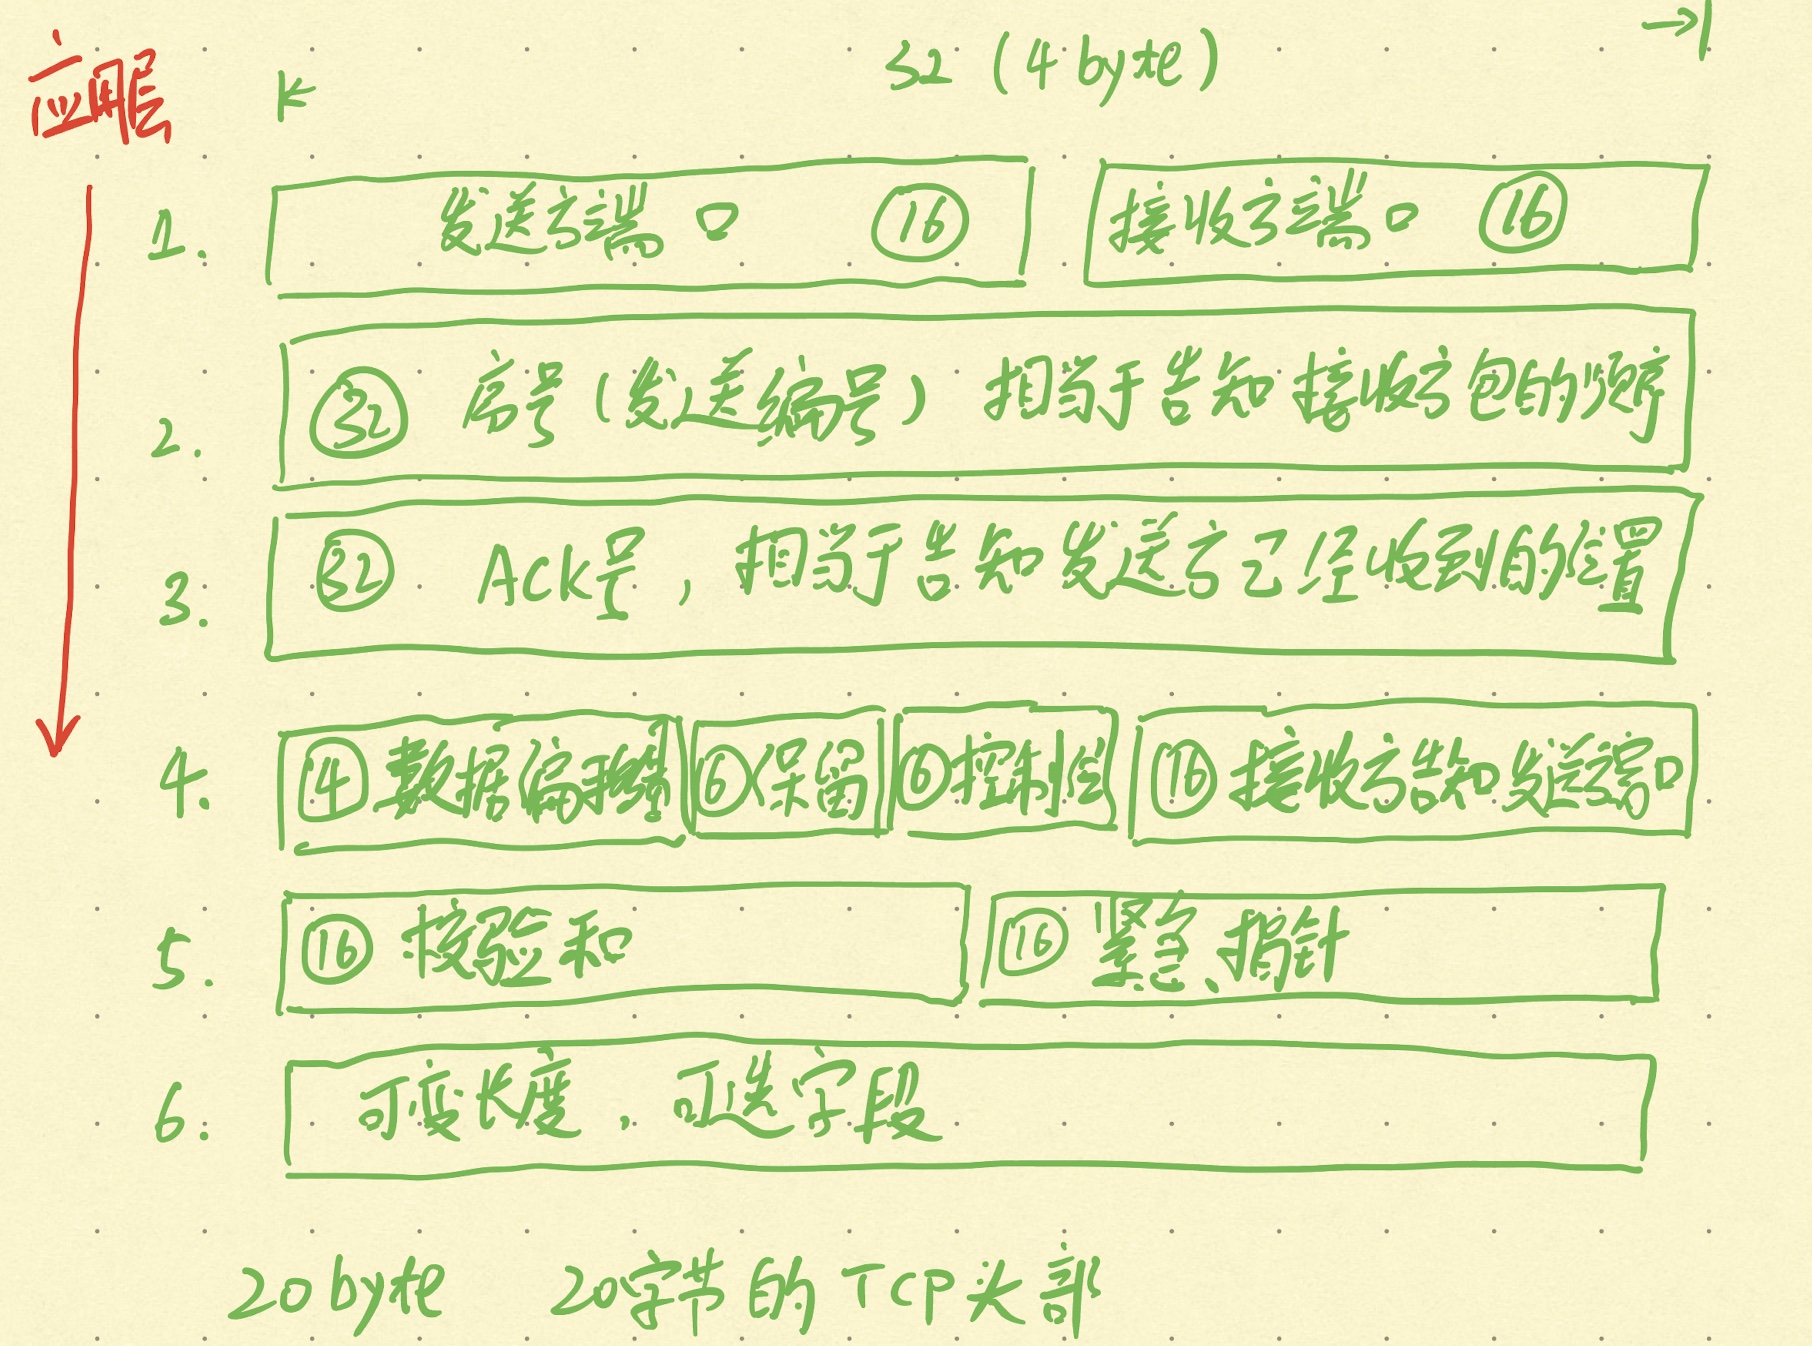 应用层
32 (4 byte)
1. 发送方端口 16 接收方端口 16
2. 32 序号(发送编号) 相当于告知接收方包的顺序
3. 32 ACK号, 相当于告知发送方已经收到的位置
4. 4 数据偏移 6 保留 6 控制位 16 接收方告知发送 口
5. 16 校验和 16 紧急指针
6. 可变长度, 可选字段
20byte 20字节的TCP头部